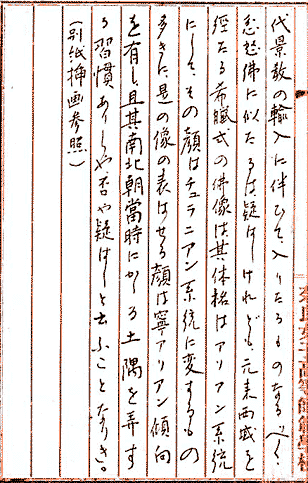 代景教の輸入に伴ひて入りたるものなるべく、
忿怒佛に似たるは疑はしけれども元来西域を
経たる希臘式の佛像は其体格はアリアン系統
にしてその顔はチュラニアン系統に変するもの
多きに是の像の表はせる顔は寧アリアン傾向
を有し且其南北朝當時にかゝる土隅を弄す
る習慣ありしや否や疑はしと云ふことなりき。
（別紙挿画参照）